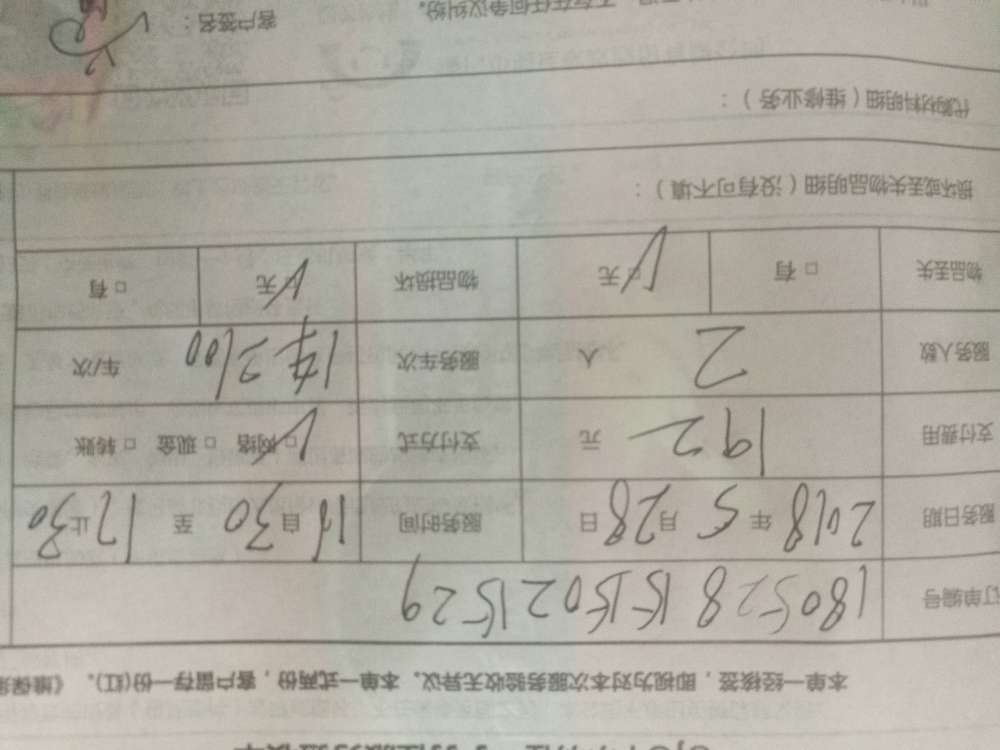 本单一经核签，即视为对本次服务验收无异议。本单一式两份，客户留存一份(红)。
订单编号 1805281515021529
服务日期 2018年5月28日 服务时间 自1630至1730止
支付费用 192元 支付方式 ☑网络 □现金 □转账
服务人数 2人 服务车次 车/次
物品丢失 □有 ☑无 物品损坏 ☑无 □有
损坏或丢失物品明细（没有可不填）：
代购材料明细（维修业务）：
不存在任何争议纠纷。
客户签名：